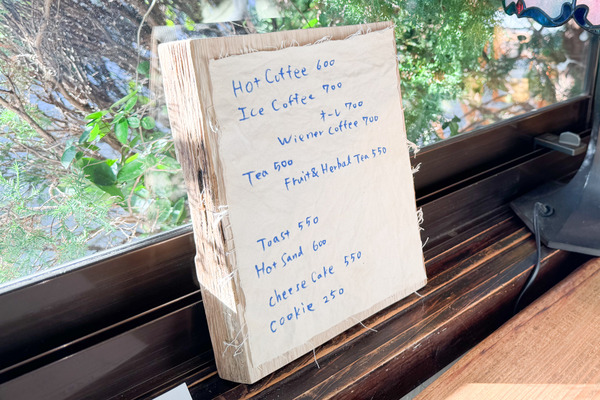 Hot Coffee 600
Ice Coffee 700
オーレ 700
Wiener Coffee 700
Tea 500
Fruit & Herbal Tea 550
Toast 550
Hot Sand 600
cheese Cake 550
Cookie 250